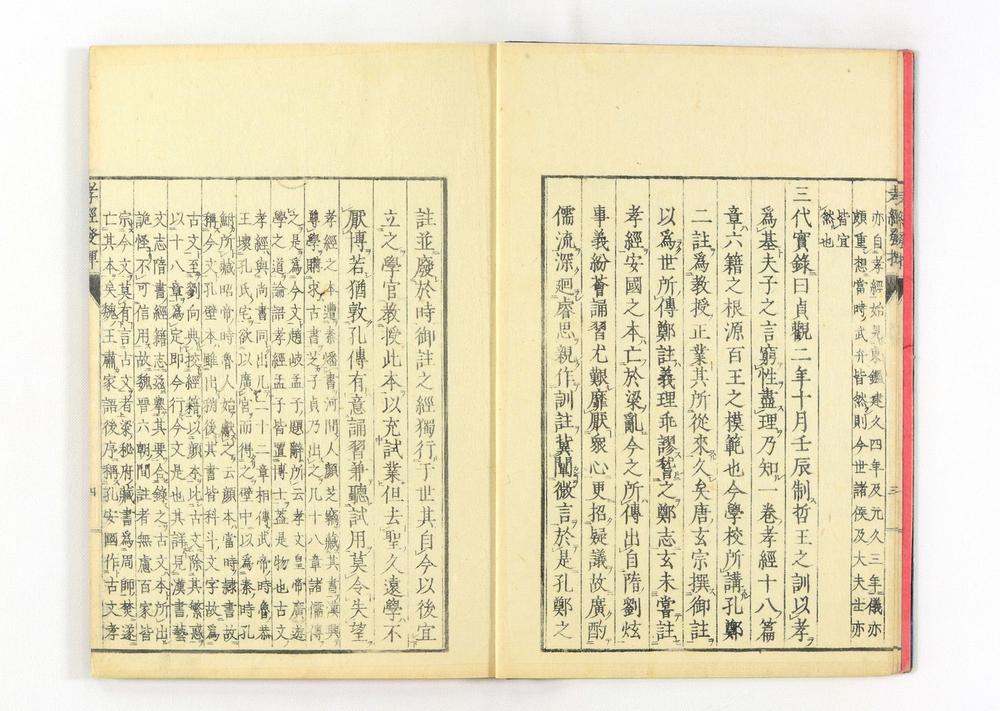 亦自孝經始見東鑑建久四年及元久三年儀亦
頗重想當時武弁皆然則今世諸侯及大夫士亦
皆宜
然也
三代實錄曰貞觀二年十月壬辰制哲王之訓以孝
爲基夫子之言窮性盡理乃知一卷孝經十八篇
章六籍之根源百王之模範也今學校所講孔鄭
二註爲教授正業其所從來久矣唐玄宗撰御註
以爲世所傳鄭註義理乖謬之鄭志玄未嘗註
孝經安國之本亡於梁亂今之所傳出自隋劉炫
事義紛薈誦習尤艱靡厭衆心更招疑議故廣酌
儒流深廻睿思親作訓註冀闡微言於是孔鄭之
孝經發揮
三
註並廢於時御註之經獨行于世其自今以後宜
立之學官教授此本以充試業但去聖久遠學不
厭博若猶敦孔傳有意誦習兼聽試用莫令失望
孝經之本遭秦燔書河間人顏芝竊藏其書漢興
尊學購求古書芝子貞乃出之凡十八章諸儒傳
之是爲今文趙岐孟子題辭所云孝文皇帝廣遊
學之道論語孝經孟子皆置博士蓋是物也古文
孝經與尚書同出凡二十二章相傳武帝時魯恭
王壞孔氏宅欲以廣宮而得之壁中以爲秦時孔
鮒所藏昭帝時魯人始獻之云顏本當時隷書故
稱今文孔壁本雖出稍後其書皆科斗文字故爲
古文至劉向典校經籍以顏本比古文除其繁惑
以十八章爲定即今行今文是也其詳見漢書藝
文志隋書經籍志茲擧其要全錄之古文本所出
詭怪不可信用故魏晉六朝間註者無慮百家皆
宗今文莫有言古文者梁秘府藏書爲周師焚遂
亡其本矣魏王肅家語後序稱孔安國作古文孝
孝經發揮
四